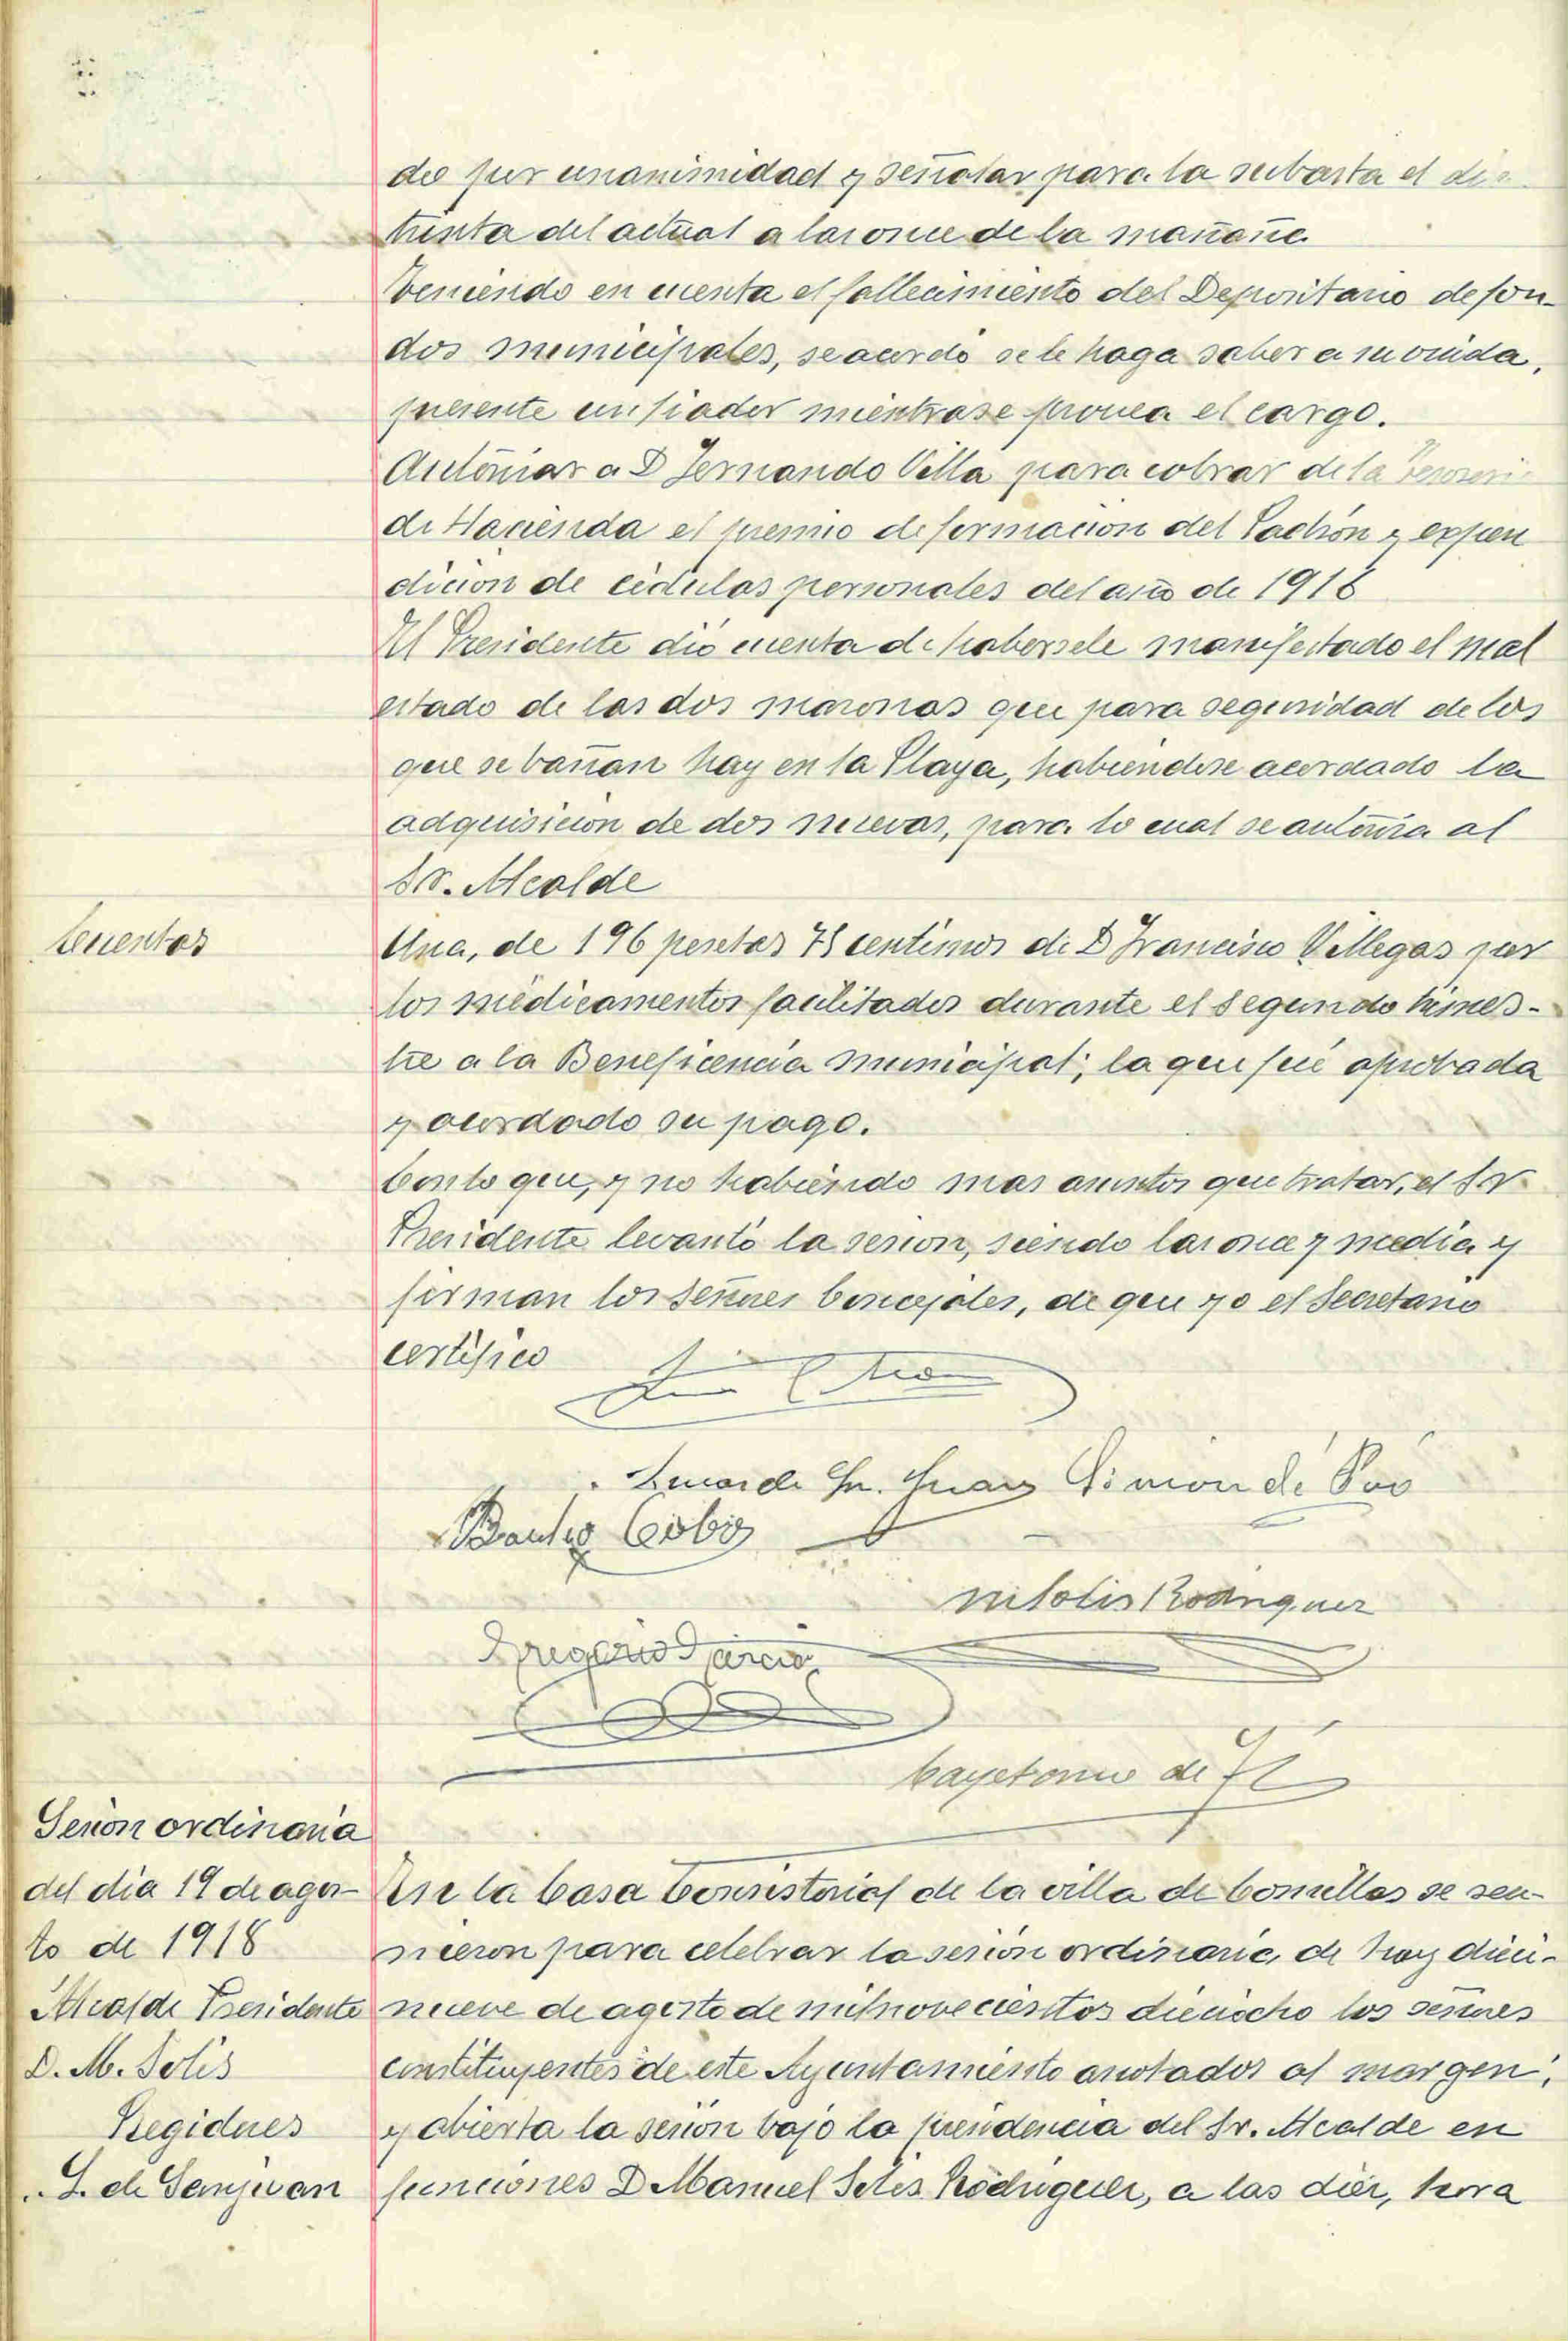 do por unanimidad y señalar para la subasta el dia
treinta del actual a las once de la mañana
Teniendo en cuenta el fallecimiento del Depositario de fon-
dos municipales, se acordó se le haga saber a su viuda,
presente un fiador mientras se provea el cargo.
Autorizar a D Fernando Villa para cobrar de la Tesoreria
de Hacienda el premio de formacion del Padrón y expen
dicion de cédulas personales del año de 1918
El Presidente dió cuenta de habersele manifestado el mal
estado de las dos maromas que para seguridad de los
que se bañan hay en la Playa, habiendose acordado la
adquisicion de dos nuevas, para lo cual se autoriza al
Sr. Alcalde
Cuentas
Una, de 196 pesetas 75 centimos de D Francisco Villegas por
los medicamentos facilitados durante el segundo trimes-
tre a la Beneficencia municipal; la que fué aprobada
y acordado su pago.
Con lo que, y no habiendo mas asuntos que tratar, el Sr
Presidente levantó la sesion, siendo las once y media y
firman los señores Concejales, de que yo el Secretario
certifico
de Sn. Juan Simon de Poó
Cobis
M Solis Rodriguez
Gregorio Garcia
Cayetano de
Sesion ordinaria
del dia 19 de agos-
to de 1918
Alcalde Presidente
D. M. Solis
Regidores
L. de Sanjuan
En la Casa Consistorial de la villa de Comillas se reu-
nieron para celebrar la sesión ordinaria de hoy dieci-
nueve de agosto de mil novecientos dieciocho los señores
constituyentes de este Ayuntamiento anotados al margen;
y abierta la sesión bajo la presidencia del Sr. Alcalde en
funciones D Manuel Solis Rodriguez, a las diez, hora